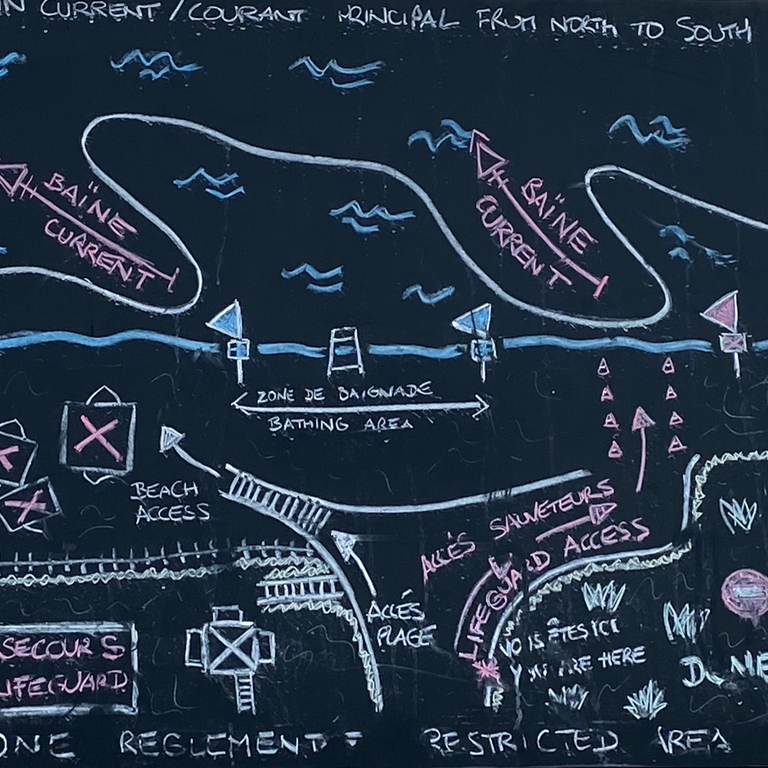 IN CURRENT / COURANT PRINCIPAL FROM NORTH TO SOUTH
BAÏNE
CURRENT
BAÏNE
CURRENT
ZONE DE BAIGNADE
BATHING AREA
BEACH
ACCESS
ACCÈS SAUVETEURS
LIFEGUARD ACCESS
ACCÉS
PLAGE
SECOURS
LIFEGUARD
VO IS ÊTES ICI
Y ARE HERE
DUNE
ONE REGLEMENT E RESTRICTED AREA